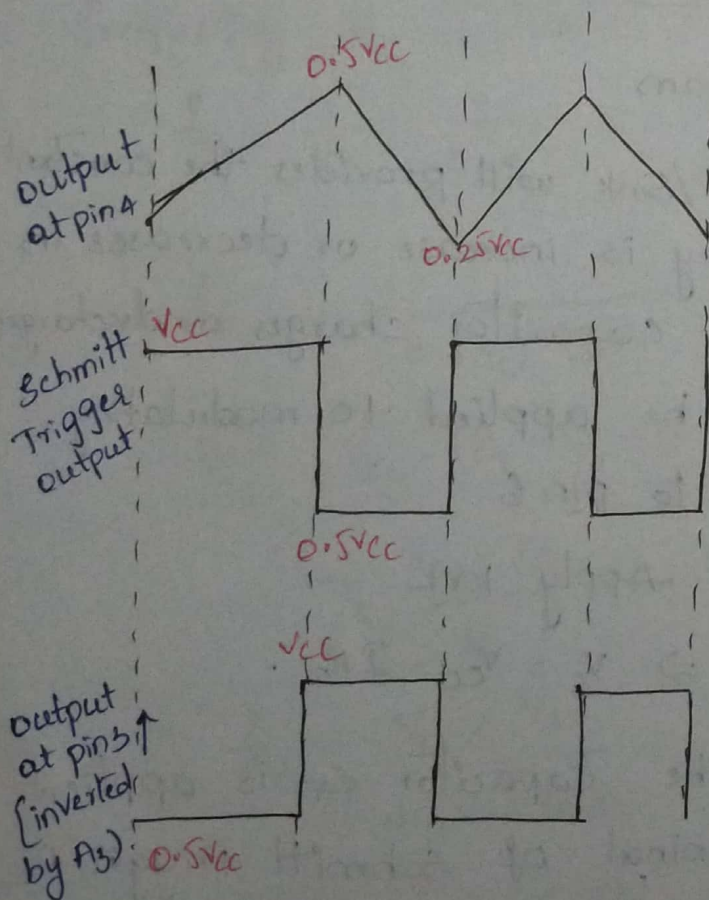 0.5VCC
Output
at pin4
0.25VCC
VCC
Schmitt
Trigger
output
0.5VCC
VCC
output
at pin3
(inverted
by A3)
0.5VCC